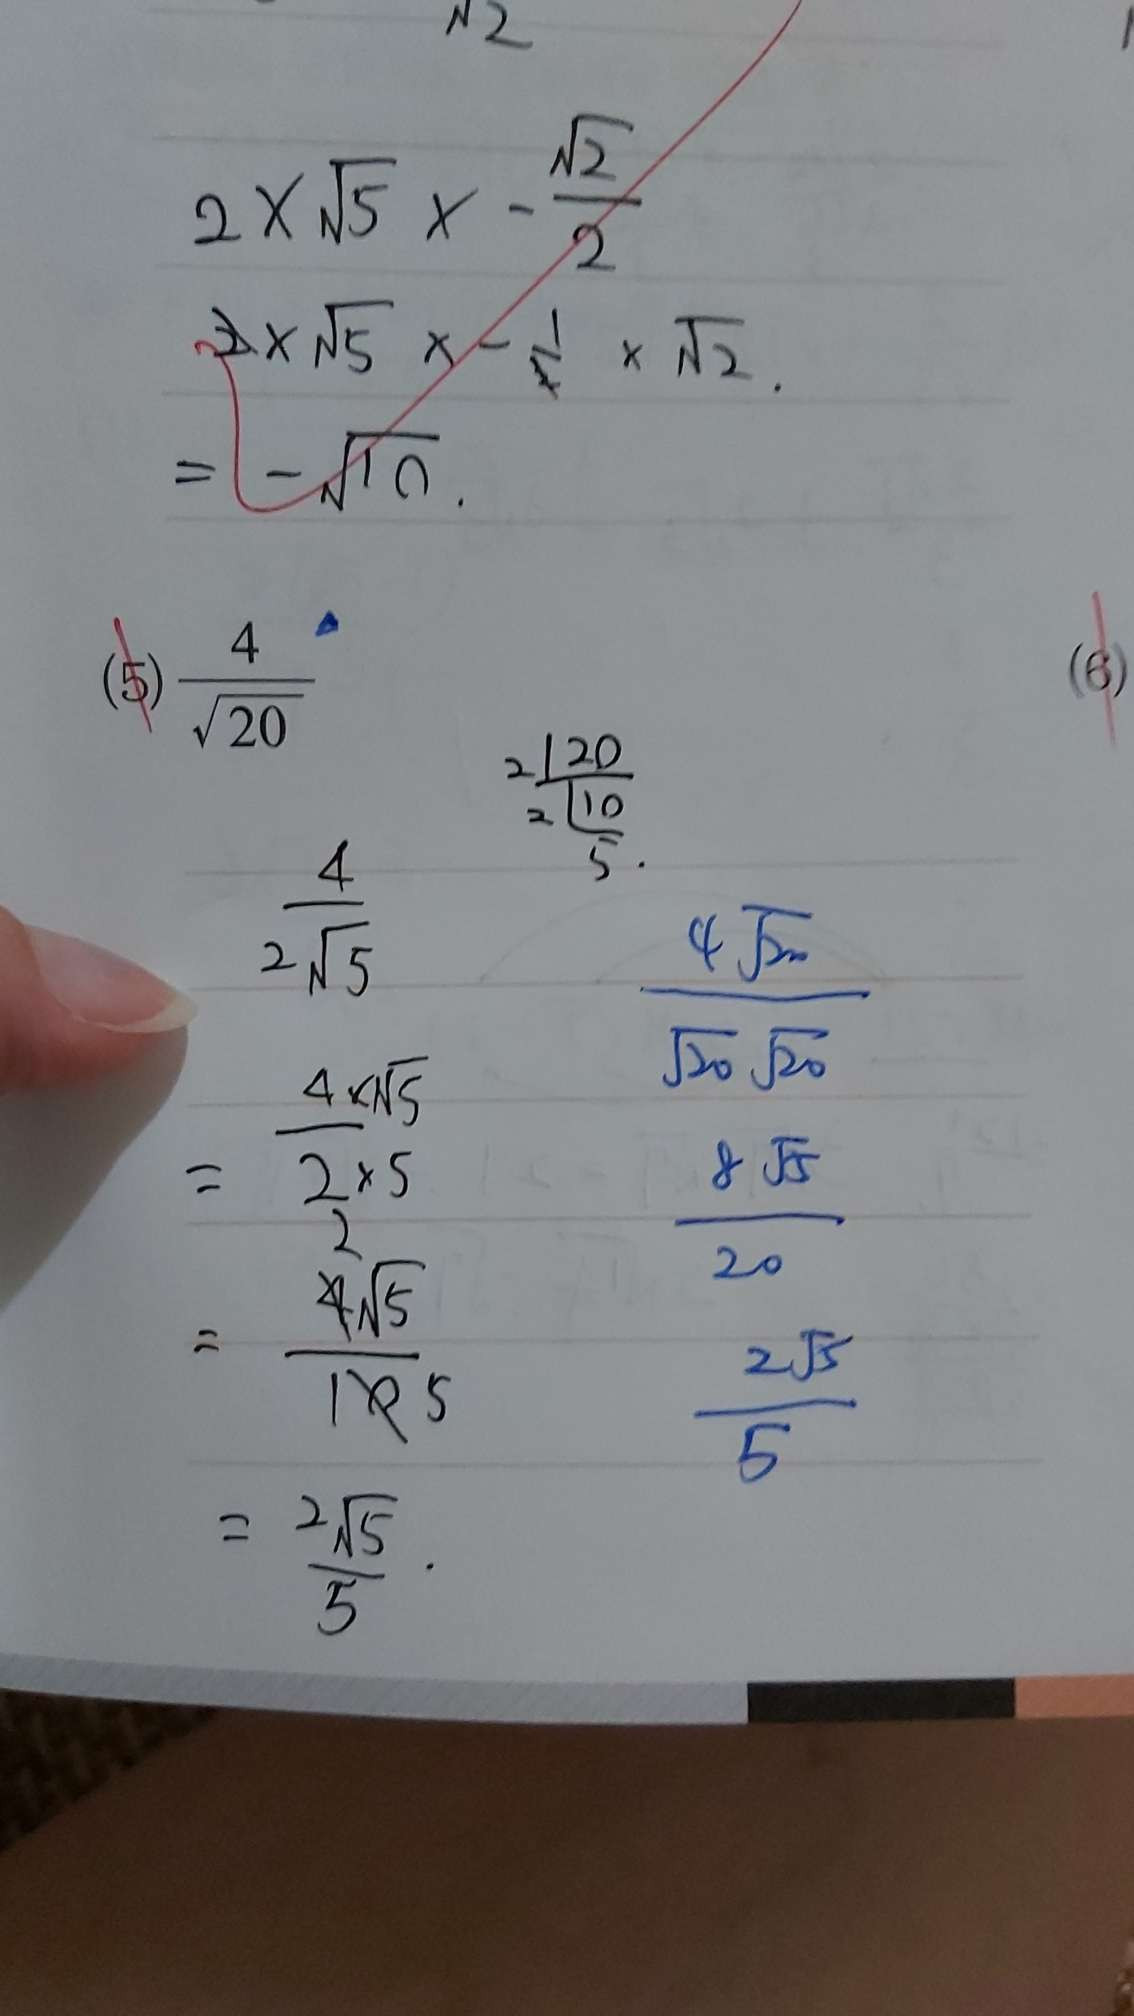 √2
2 × √5 × - √2/2
2 × √5 × - 1/2 × √2.
= - √10.
(5) 4/√20
(6)
2 | 20
2 | 10
5.
4/2√5
= 4×√5/2×5
2
= 4√5/10 5
= 2√5/5 .
4√20/√20 √20
8√5/20
2√5/5